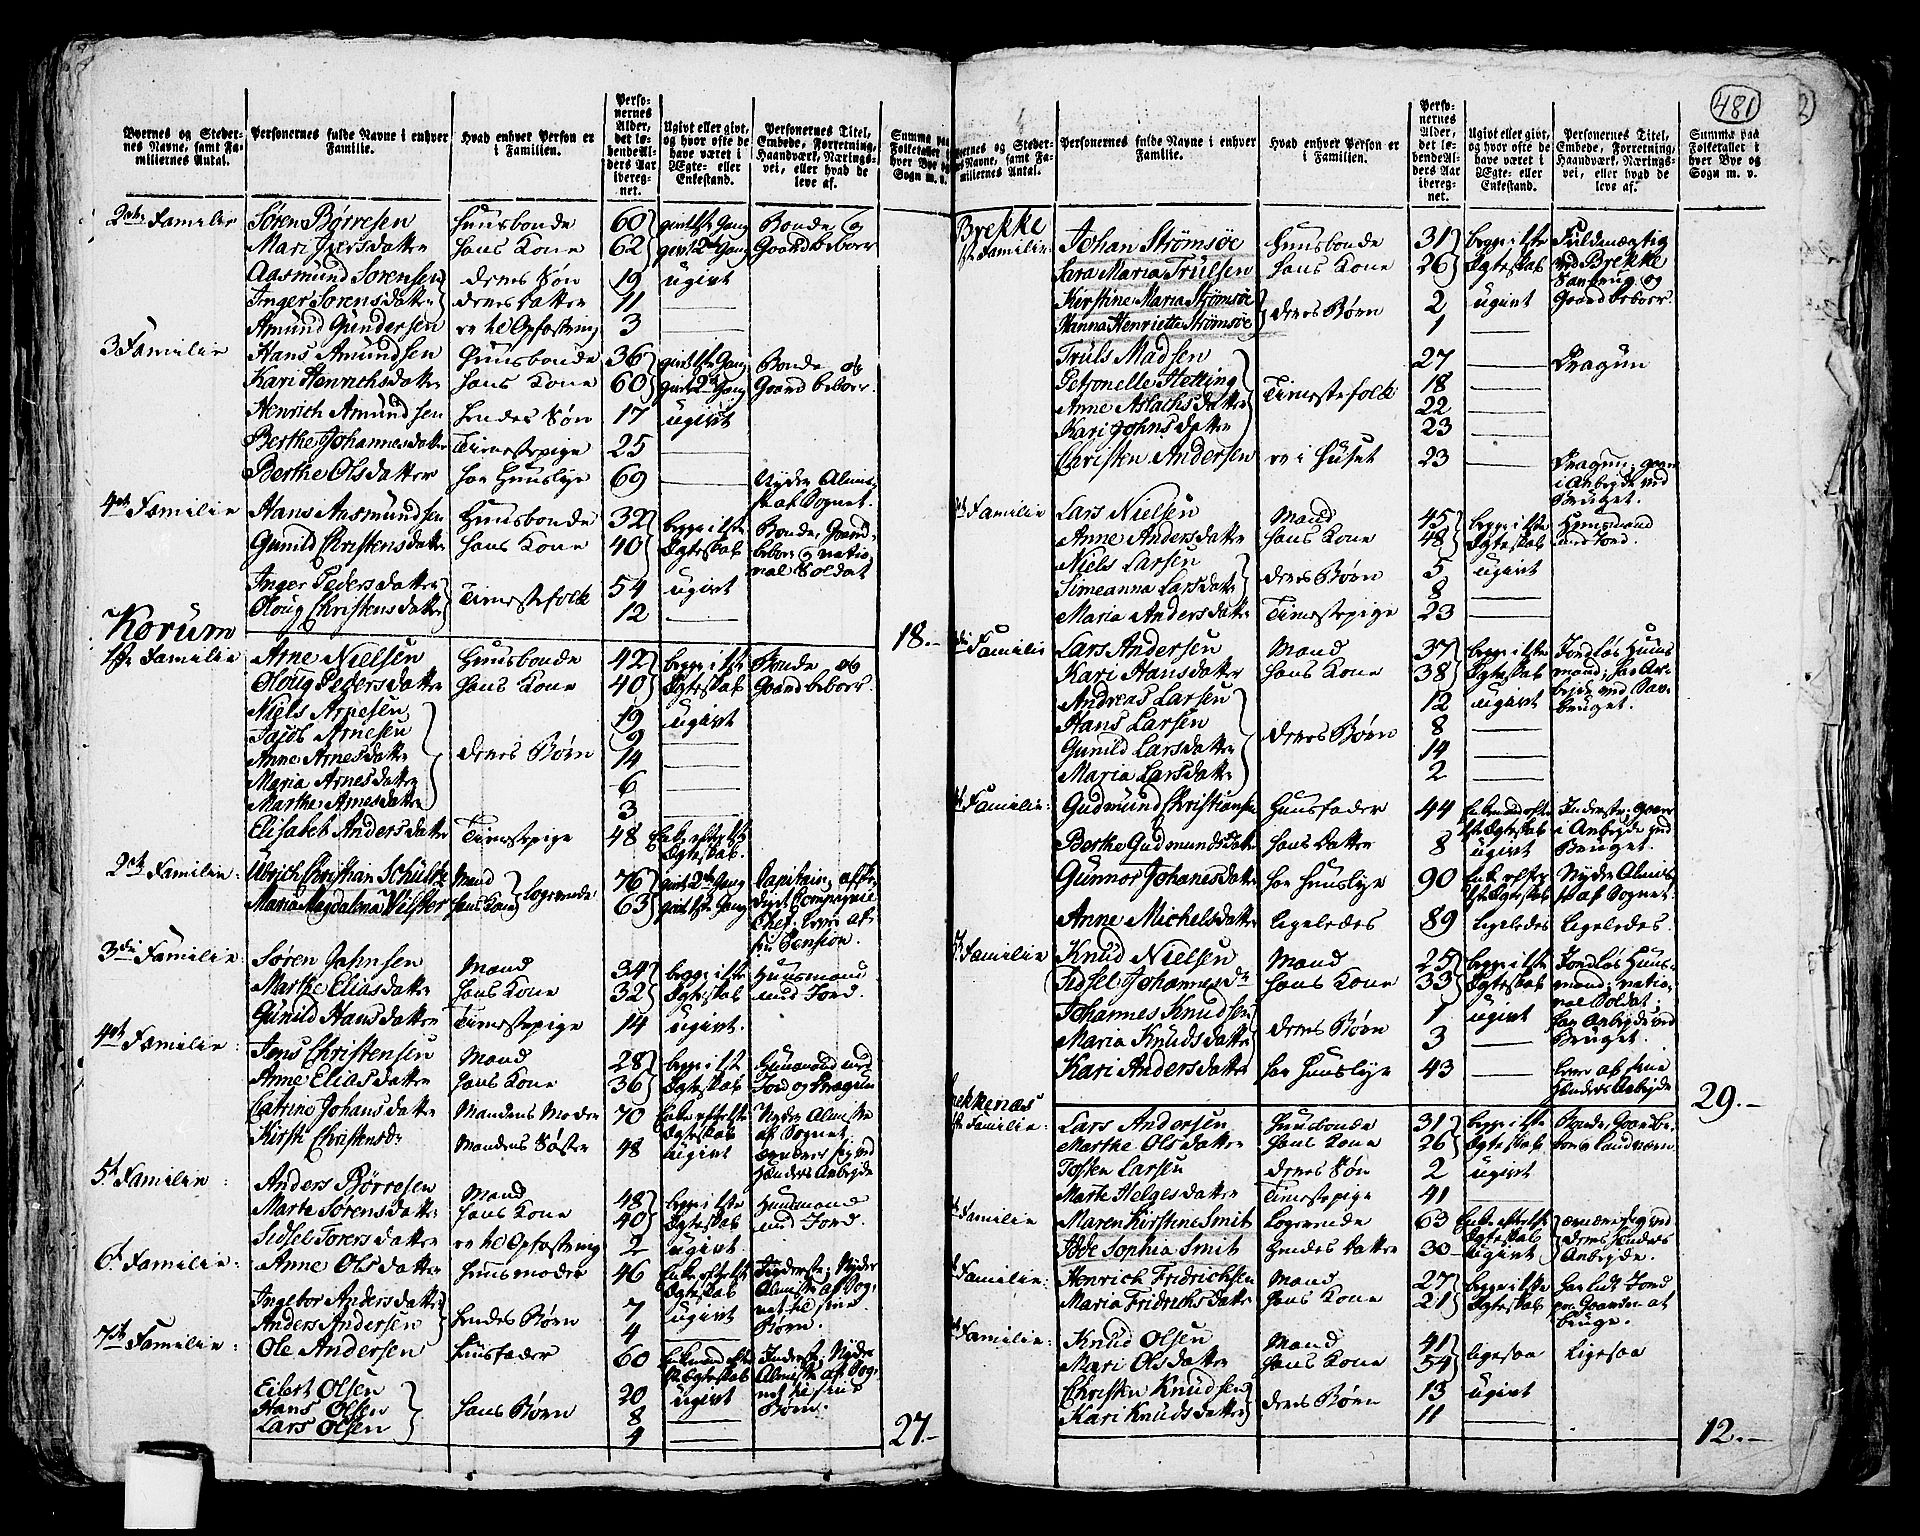 481
2)
Byernes og Stedernes Navne, samt Familiernes Antal.
Personernes fulde Navne i enhver Familie.
Hvad enhver Person er i Familien.
Personernes Alder, det løbende Alders Aar iberegnet.
Ugivt eller givt, og hvor ofte de have været i Ægte- eller Enkestand.
Personernes Titel, Embede, Forretning, Haandværk, Næringsvei, eller hvad de leve af.
Summa paa Folketallet i hver Bye og Sogn m. v.
2den Familie Søren Børresen Huusbonde 60 givt 1ste Gang Bonde og
Mari Iversdatter Hans Kone 62 givt 2den Gang Gaardbeboer
Aasmund Sorensen deres Søn 19 ugivt
Inger Sorensdatter deres Datter 11
Amund Gundersen et til Opfostring 3
3 Familie Hans Amundsen Huusbonde 36 givt 1ste Gang Bonde og
Kari Henrichsdatter Hans Kone 60 givt 2den Gang Gaardbeboer
Henrich Amundsen Hendes Søn 17 ugivt
Berthe Johannesdatter Tienestepige 25
Berthe Olsdatter 69 Nyder Almisse af Sognet.
4de Familie Hans Aasmundsen Huusbonde 32 begge i 1ste Bonde, Gaard-
Gunild Christensdatter Hans Kone 40 Ægteskab beboer og natio-
nal Soldat
Inger Pedersdatter Tienestefolk 54 ugivt
Oloug Christensdatter 12
18.-
Korum
1ste Familie Arne Nielsen Huusbonde 42 begge i 1ste Bonde og
Oloug Pedersdatter Hans Kone 40 Ægteskab Gaardbeboer.
Niels Arnesen 19 ugivt
Jacob Arnesen 9
Anne Arnesdatter deres Børn 14
Maria Arnesdatter 6
Marthe Arnesdatter 3
Elisabet Andersdatter Tienestepige 48 Enke efter 1ste
Ægteskab.
2den Familie: Ulrich Christian Schultz Mand 76 givt 2den Gang Capitain,
Maria Magdalena Wilster Hans Kone logerende 63 givt 1ste Gang Compagnie
Chef, lever af
sin Pension.
3die Familie Søren Jahnsen Mand 34 begge i 1ste Huusmand
Marthe Eliasdatter Hans Kone 32 Ægteskab med Jord.
Gunild Hansdatter Tienestepige 14 ugivt.
4de Familie: Jens Christensen Mand 28 begge i 1ste Huusmand med
Anne Eliasdatter Hans Kone 36 Ægteskab Jord og Dragun
Catrine Johansdatter Mandens Moder 70 Enke efter 1ste Nyder Almisse
Ægteskab af Sognet.
Kirsti Christensdr Mandens Søster 48 ugivt
Hænders Arbejde
5te Familie: Anders Børresen Mand 48 begge i 1ste Huusmand
Marte Sorensdatter Hans Kone 40 Ægteskab med Jord.
Sidsel Torersdatter et til Opfostring 2 ugivt.
6te Familie: Anne Olsdatter Huusmoder 46 Enke efter 1ste Inderste, Nyder
Ægteskab Almisse af Sog-
Ingebor Andersdatter Hendes Børn 7 ugivt net til sine
Anders Andersen 4 Børn.
7de Familie: Ole Andersen Huusfader 60 Enkemand efter Inderste, Nyder
1ste Ægteskab Almisse af Sog-
Eilert Olsen 20 ugivt net til sine
Hans Olsen Hans Børn 8 Børn.
Lars Olsen 4
27.-
Byernes og Stedernes Navne, samt Familiernes Antal.
Personernes fulde Navne i enhver Familie.
Hvad enhver Person er i Familien.
Personernes Alder, det løbende Alders Aar iberegnet.
Ugivt eller givt, og hvor ofte de have været i Ægte- eller Enkestand.
Personernes Titel, Embede, Forretning, Haandværk, Næringsvei, eller hvad de leve af.
Summa paa Folketallet i hver Bye og Sogn m. v.
Brekke
1ste Familie Johan Strømsøe Huusbonde 31 begge i 1ste Fuldmægtig
Sara Maria Trulsen Hans Kone 26 Ægteskab ved Brekke
Saubrug og
Kirstine Maria Strømsøe deres Børn 2 ugivt Gaardbeboer.
Hanna Henriette Strømsøe 1
Truls Madsen 27 Dragun
Petronelle Hetting Tienestefolk 18
Anne Aslachsdatter 22
Kari Johnsdatter 23
Christen Andersen er i Huset 23 Dragun, gaar
i Arbejde ved
Bruget.
Familie Lars Nielsen Mand 45 begge i 1ste Huusmand
Anne Andersdatter Hans Kone 48 Ægteskab med Jord.
Niels Larsen deres Børn 5 ugivt
Simeanna Larsdatter 8
Maria Andersdatter Tienestepige 23
Familie Lars Andersen Mand 37 begge i 1ste Jordløs Huus-
Kari Hansdatter Hans Kone 38 Ægteskab mand, har Ar-
Andreas Larsen 12 ugivt bejde ved Sav-
Hans Larsen deres Børn 8 bruget.
Gunild Larsdatter 14
Maria Larsdatter 2
Familie: Gudmund Christiansen Huusfader 44 Enkemand efter Inderste, gaaer
1ste Ægteskab i Arbejde ved
Berthe Gudmundsdatter Hans Datter 8 ugivt Bruget.
Gunnor Johanesdatter 90 Enke efter Nyder Almis-
1ste Ægteskab se af Sognet.
Anne Michelsdatter ligeledes 89 ligeledes ligeledes.
5te Familie Knud Nielsen Mand 25 begge i 1ste Jordløs Huus-
Sidsel Johannesdr Hans Kone 33 Ægteskab mand, natio-
Johannes Knudsen deres Børn 1 ugivt nal Soldat,
Maria Knudsdatter 3 har Arbejde ved
Bruget.
Kari Andersdatter 43 lever af sine
Hænders Arbejde
29.-
ekkenæs
Familie: Lars Andersen Huusbonde 31 begge i 1ste Bonde, Gaardbe-
Marthe Olsdatter Hans Kone 26 Ægteskab boer, Landværn
Josten Larsen deres Søn 2 ugivt
Marte Helgesdatter Tienestepige 41
Familie Maren Kirstine Smit Logerende 63 Enke efter 1ste ernærer sig ved
Ægteskab deres Hænders
Ide Sophia Smit Hendes Datter 30 ugivt Arbejde.
Familie: Henrich Fridrichsen Mand 27 begge i 1ste
Maria Fridrichsdatter Hans Kone 21 Ægteskab
bruge.
Familie: Knud Olsen Mand 41 ligesaa Ligesaa
Mari Olsdatter Hans Kone 54
Christen Knudsen deres Børn 13 ugivt
Kari Knudsdatter 11
12.-